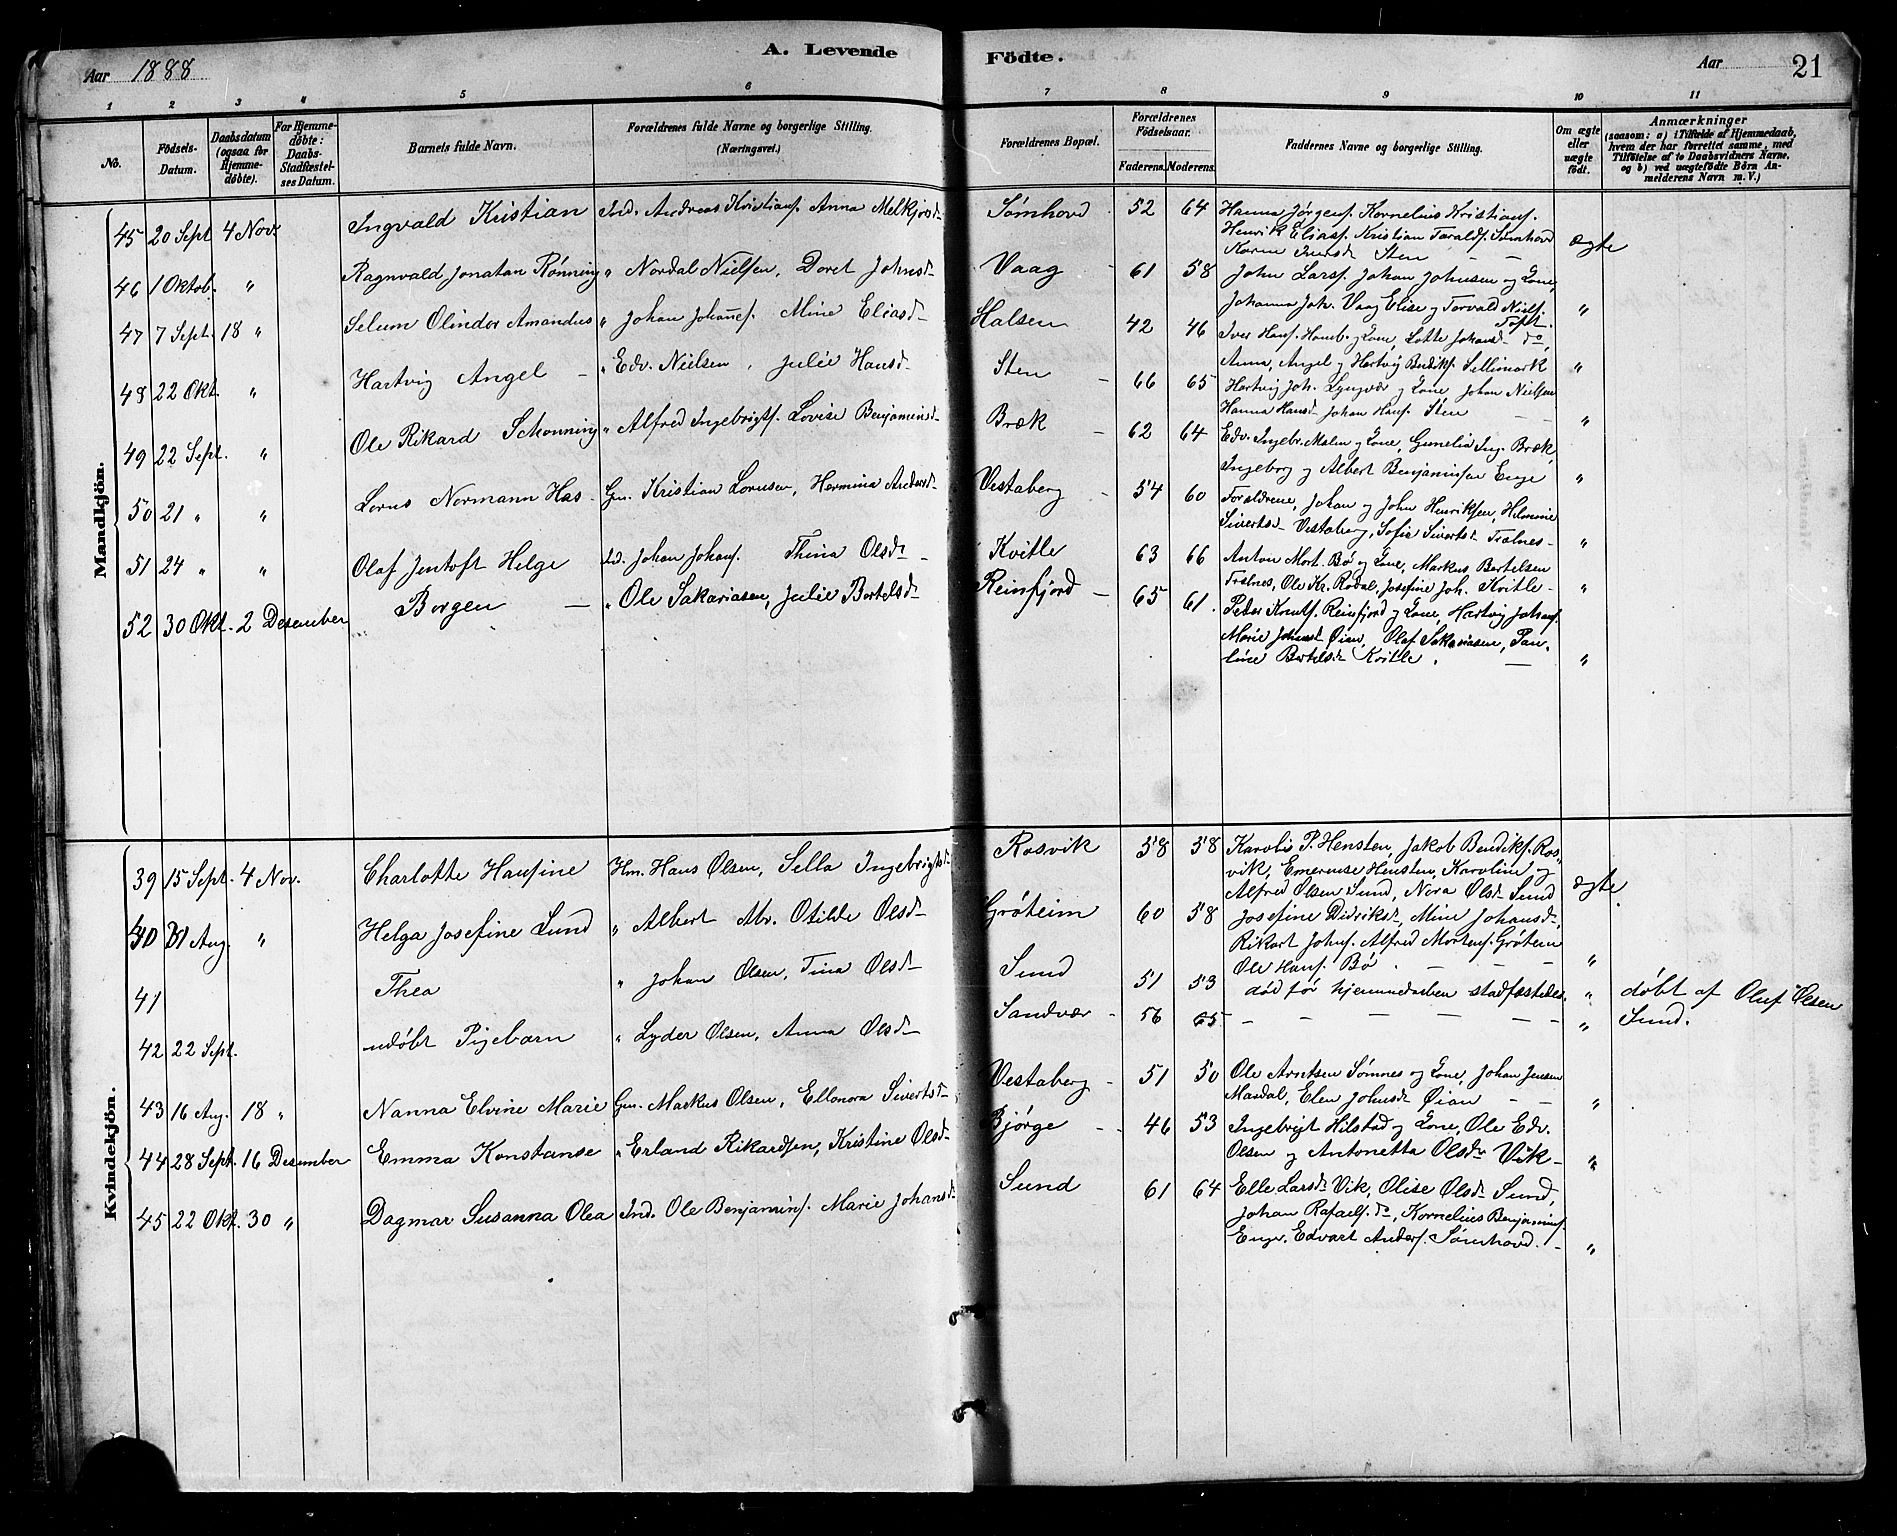 Aar 1888
A. Levende Födte.
Aar 21
1 2 3 4 5 6 7 8 9 10 11
No.
Födsels-Datum.
Daabsdatum (ogsaa for Hjemme-døbte).
For Hjemme-døbte: Daabs-Stadfæstel-ses Datum.
Barnets fulde Navn.
Forældrenes fulde Navne og borgerlige Stilling. (Næringsvei.)
Forældrenes Bopæl.
Forældrenes Födselsaar.
Faderens. Moderens.
Faddernes Navne og borgerlige Stilling.
Om ægte eller uægte födt.
Anmærkninger
(saasom: a) i Tilfælde af Hjemmedaab, hvem der har forrettet samme, med Tilföielse af to Daabsvidners Navne, og b) ved uægtefödte Börn An-melderens Navn m. V.)
Mandkjön.
45 20 Sept 4 Nov. Ingvald Kristian Ind. Andreas Kristians. Anna Melkjorsd Sømhovd 52 64 Hanna Jørgens. Kornelius Kristians.
Henrik Elias. Kristian Taralds. Sømhovd
Karen Sten ægte
46 1 Oktob. " Ragnvald Jonatan Rønning " Nordal Nielsen, Doret Johnsd Vaag 61 58 John Lars. Johan Johnsen og Kone,
Johanna Joh. Vaag Elise og Torvald Niels.
Toft. "
47 7 Sept. 18 " Selum Olinder Amandus " Johan Johans. Mine Eliasd Halsen 42 46 Iver Hans. Hamb. og Kone, Lotte Johansd do,
Anna, Angel og Hartvig Bendiks. Sellimork "
48 22 Okt. " Hartvig Angel " Edv. Nielsen, Julie Hansd Sten 66 65 Hartvig Joh. Lyngvær og Kone, Johan Nielsen
Hanna Hansd Johan Hans. Sten "
49 22 Sept. " Ole Rikard Schønning " Alfred Ingebrigts. Lovise Benjaminsd Bræk 62 64 Edv. Ingebr. Malen og Kone, Gunelia Ing. Bræk,
Ingeborg og Albert Benjaminsen Enge "
50 21 " " Lorns Normann Has Gm. Kristian Lornsen, Hermina Andersd Vestaberg 54 60 Forældrene, Johan og John Henriksen, Helmine
Sivertsd Vestaberg, Sofie Sivertsd Trælnes "
51 24 " " Olaf Jentoft Helge Ind. Johan Johans. Thina Olsd Kvitle 63 66 Anton Mort. Bø og Kone, Markus Bertelsen
Trælnes, Ole Kr. Rødal, Josefine Joh. Kvitle "
52 30 Okt. 2 Desember Borgen " Ole Sakariasen, Julie Bertelsd Reinfjord 65 61 Peter Knuts. Reinfjord og Kone, Hartvig Johans.
Marie Johansd Øian, Olaf Sakariasen, Pau-
line Bertelsd Kvitle. "
Kvindekjön.
39 15 Sept. 4 Nov. Charlotte Hansine Hm. Hans Olsen, Sella Ingebrigtsd Rosvik 58 58 Karolis P. Hensten, Jakob Bendiks. Ros-
vik, Emerense Hensten, Karoline og
Alfred Olsen Sund, Nora Olsd Sund ægte
40 31 Aug. " Helga Josefine Lund " Albert Abr. Otilde Olsd Grøteim 60 58 Josefine Didriksd, Mine Johansd,
Rikart Johns. Alfred Mortens. Grøteim
Ole Hans. Bø "
41 Thea " Johan Olsen, Tina Olsd Sund 51 53 død før hjemmedaaben stadfæstedes. " døbt af Oluf Olsen
Sund.
42 22 Sept. udøbt Pigebarn " Lyder Olsen, Anna Olsd Sandvær 56 65 "
43 16 Aug. 18 " Nanna Elvine Marie Gm. Markus Olsen, Ellonora Sivertsd Vestaberg 51 50 Ole Arntsen Sømnes og Kone, Johan Jensen
Mardal, Elen Johnsd Øian "
44 28 Sept. 16 Desember Emma Konstanse " Erland Rikardsen, Kristine Olsd Bjørge 46 53 Ingebrigt Hilstad og Kone, Ole Edv.
Olsen og Antonetta Olsdr Vik "
45 22 Okt. 30 " Dagmar Susanna Olea Ind. Ole Benjamins. Marie Johansd Sund 61 64 Elle Larsd Vik, Olise Olsd Sund,
Johan Rafaels. do, Kornelius Benjamins.
Enge, Edvart Anders. Sømhovd. "